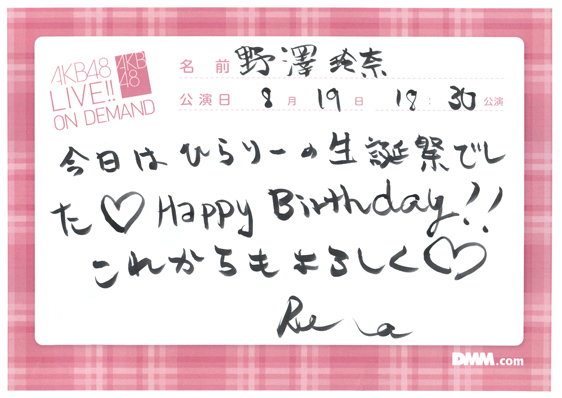 AKB48
LIVE!!
ON DEMAND
AKB
48
名前 野澤玲奈
公演日 8月19日 18:30公演
今日はひらりーの生誕祭でし
た♡Happy Birthday!!
これからもよろしく♡
Rena
DMM.com